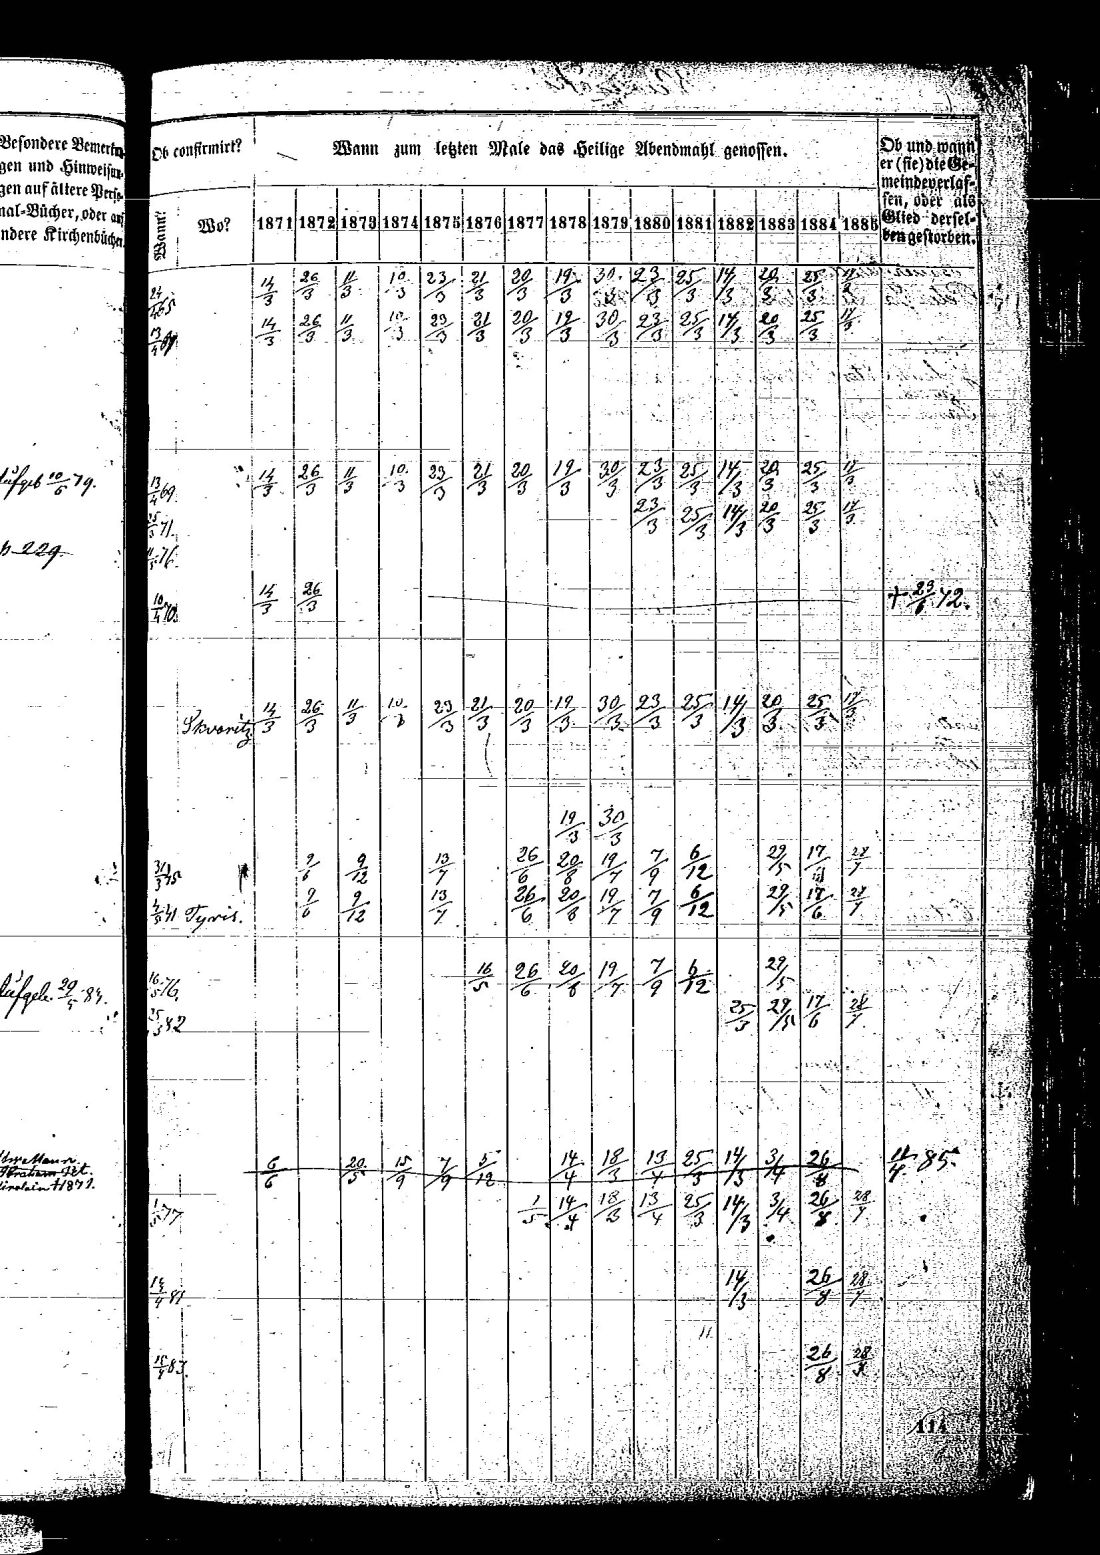 Besondere Bemerkun-
gen und Hinweisun-
gen auf ältere Perso-
nal-Bücher, oder auf
andere Kirchenbücher.
Ob confirmirt?
Wann?
Wo?
Wann zum letzten Male das Heilige Abendmahl genossen.
Ob und wann
er (sie) die Ge-
meinde verlas-
sen, oder als
Glied dersel-
ben gestorben.
1871 1872 1873 1874 1875 1876 1877 1878 1879 1880 1881 1882 1883 1884 1885
65 14/3 26/3 11/3 10/3 23/3 21/3 20/3 19/3 30/3 23/3 25/3 14/3 20/3 25/3 17/3
13/4 69 14/3 26/3 11/3 10/3 23/3 21/3 20/3 19/3 30/3 23/3 25/3 14/3 20/3 25/3 17/3
aufgeb 10/6 79. 13/4 69 14/3 26/3 11/3 10/3 23/3 21/3 20/3 19/3 30/3 23/3 25/3 14/3 20/3 25/3 17/3
71. 23/3 25/3 14/3 20/3 25/3 17/3
229. 76.
10/4 70. 14/3 26/3 + 29/6 72.
Skvoritz 14/3 26/3 11/3 10/3 23/3 21/3 20/3 19/3 30/3 23/3 25/3 14/3 20/3 25/3 17/3
19/3 30/3
75 9/6 9/12 13/7 26/6 20/8 19/7 7/9 6/12 29/5 17/6 28/7
41 Tyris. 9/6 9/12 13/7 26/6 20/8 19/7 7/9 6/12 29/5 17/6 28/7
aufgeb. 29/5 84. 16/5 76. 16/5 26/6 20/8 19/7 7/9 6/12 29/5
25/3 82 25/3 29/5 17/6 28/7
6/6 20/5 15/9 7/9 5/12 14/4 18/3 13/4 25/3 14/3 3/4 26/8 11/4 85.
† 1871.
1/5 77 1/5 14/4 18/3 13/4 25/3 14/3 3/4 26/8 28/7
81 14/3 26/8 28/7
83. 26/8 28/7
114